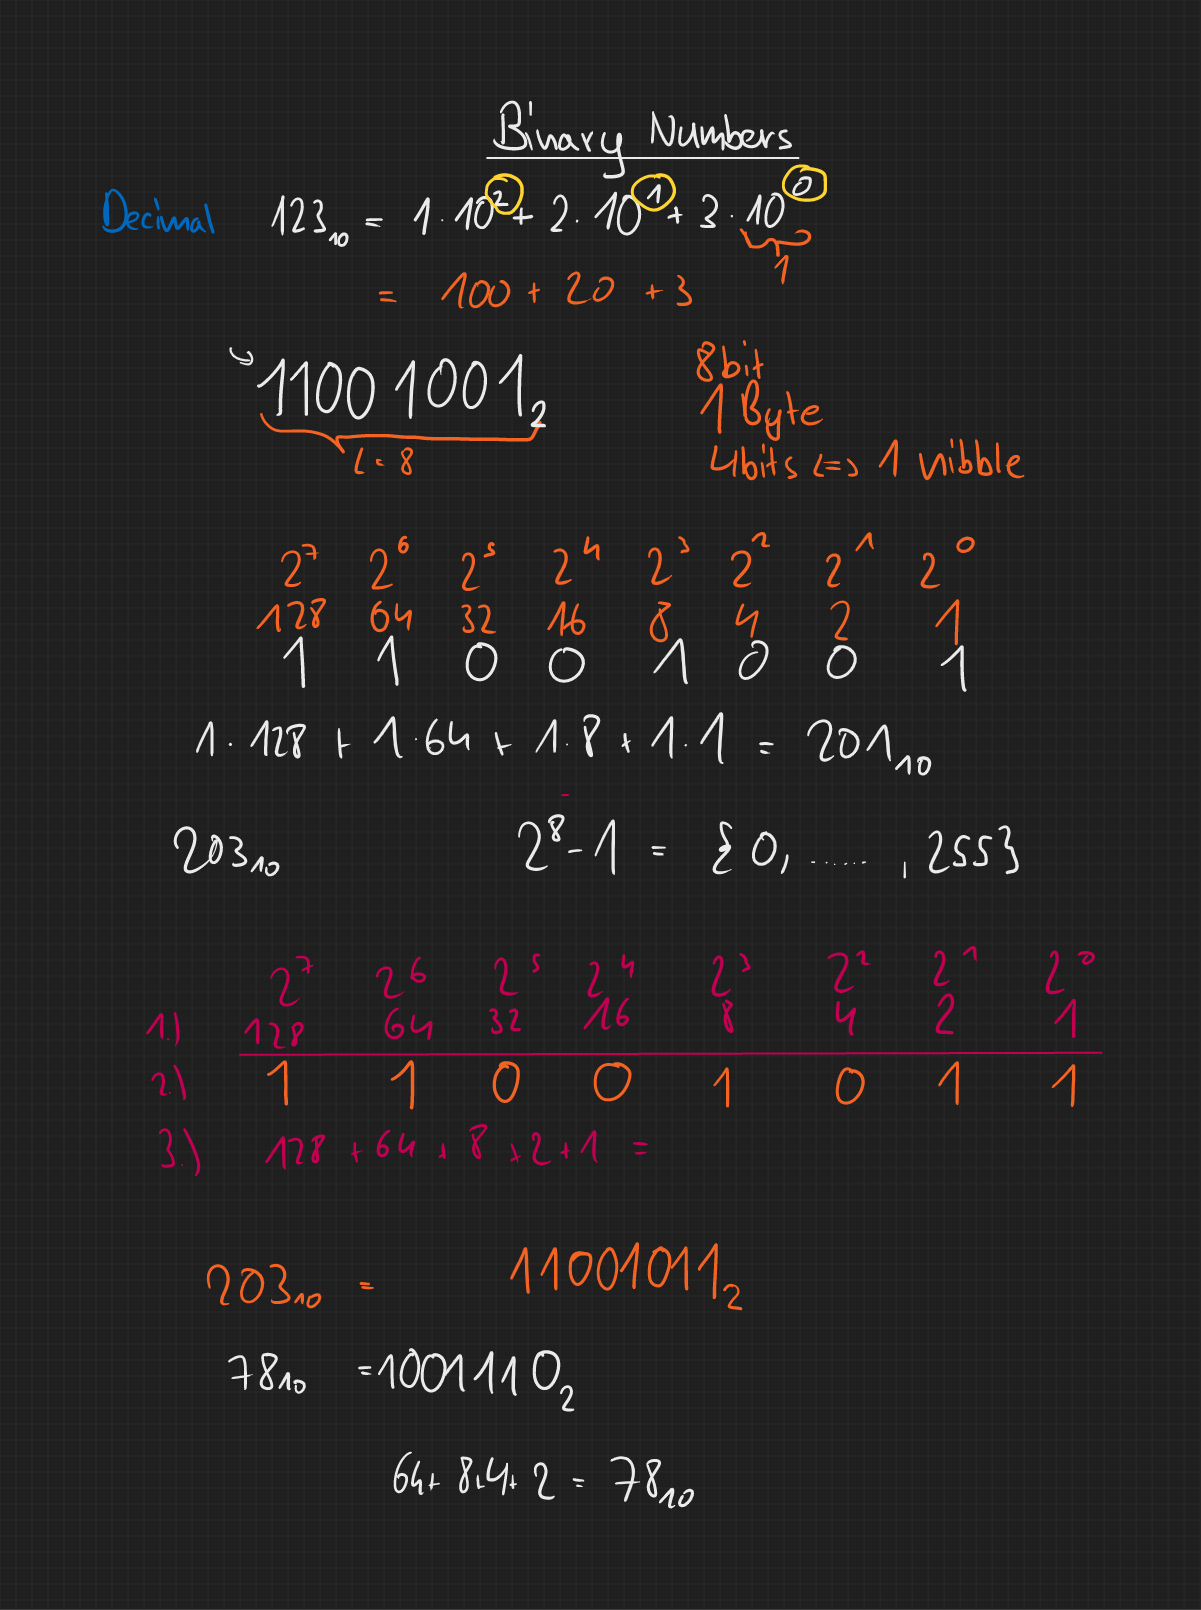 Binary Numbers
Decimal 123₁₀ = 1·10² + 2·10¹ + 3·10⁰
1
= 100 + 20 + 3
11001001₂ 8bit
1 Byte
L = 8 4bits <=> 1 nibble
2⁷ 2⁶ 2⁵ 2⁴ 2³ 2² 2¹ 2⁰
128 64 32 16 8 4 2 1
1 1 0 0 1 0 0 1
1·128 + 1·64 + 1·8 + 1·1 = 201₁₀
203₁₀ 2⁸-1 = {0, ......, 255}
2⁷ 2⁶ 2⁵ 2⁴ 2³ 2² 2¹ 2⁰
1.) 128 64 32 16 8 4 2 1
2.) 1 1 0 0 1 0 1 1
3.) 128 + 64 + 8 + 2 + 1 =
203₁₀ = 11001011₂
78₁₀ = 1001110₂
64 + 8 + 4 + 2 = 78₁₀